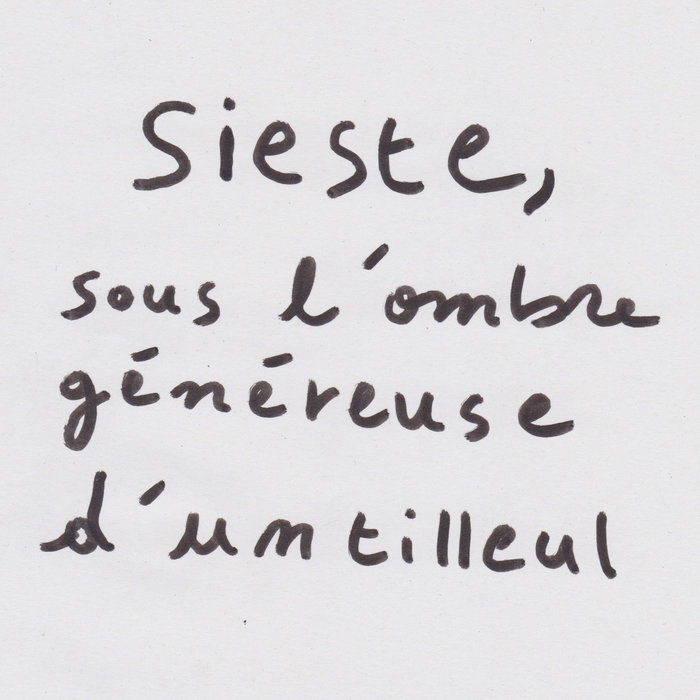 Sieste,
sous l'ombre
généreuse
d'un tilleul